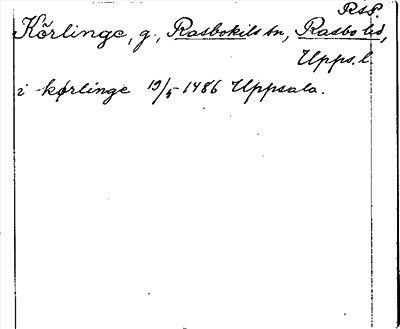 RsP.
Körlinge, g., Rasbokils sn, Rasbo hd,
Upps. l.
i kørlinge 19/5 1486 Uppsala.